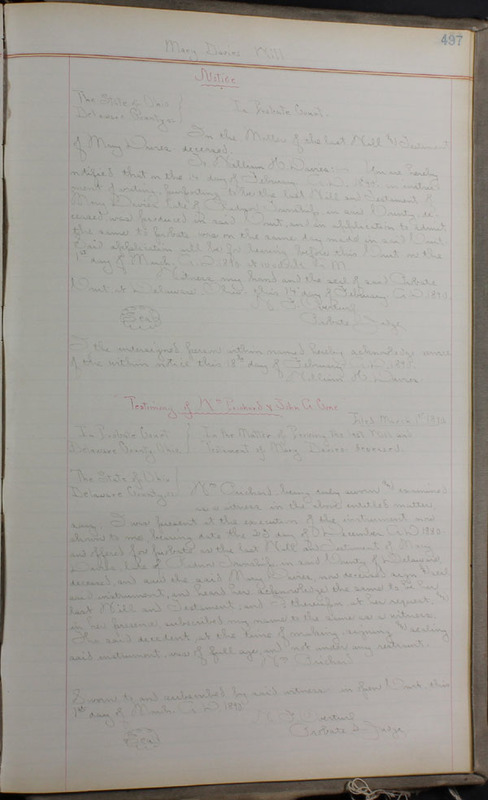 497
Mary Davies Will
Notice
The State of Ohio
Delaware County ss
In Probate Court.
In the Matter of the last Will & Testament
of Mary Davies deceased.
To William H. Davies: You are hereby
notified that on the 14 day of February A.D. 1890, an instru-
ment of writing purporting to be the last Will and Testament of
Mary Davies late of Township, in said County, de-
ceased was produced in said Court, and an application to admit
the same to probate was on the same day made in said Court.
Said application will be for hearing before this Court on the
1st day of March, A.D. 1890 at o'clock M.
Witness my hand and the seal of said Probate
Court, at Delaware, Ohio, this 14th day of February A.D. 1890.
Seal
Probate Judge
I the undersigned person within named hereby acknowledge service
of the within notice this 18th day of February A.D. 1890.
William H. Davies
Testimony of Wm Prichard & John G. Cone
Filed March 1st 1890
In Probate Court
Delaware County Ohio
In the Matter of Proving the last Will and
Testament of Mary Davies Deceased.
The State of Ohio
Delaware County ss
Wm Prichard being duly sworn & examined
as a witness in the above entitled matter
says: I was present at the execution of the instrument now
shown to me bearing date the 23 day of A.D. 188
and offered for probate as the last Will and Testament of Mary
Davies late of Township, in said County of Delaware,
deceased, and saw the said Mary Davies, now deceased sign & seal
said instrument, and heard her acknowledge the same to be her
last Will and Testament, and I thereupon, at her request, &
in her presence subscribed my name to the same as a witness.
The said decedent at the time of making, signing & sealing
said instrument, was of full age, and not under any restraint.
Wm Prichard
Sworn to and subscribed by said witness in open Court, this
1st day of March A.D. 1890
Probate Judge
Seal